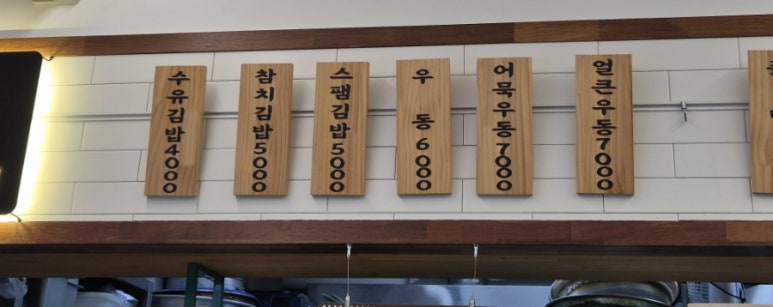 수유김밥4000
참치김밥5000
스팸김밥5000
우동6000
어묵우동7000
얼큰우동7000